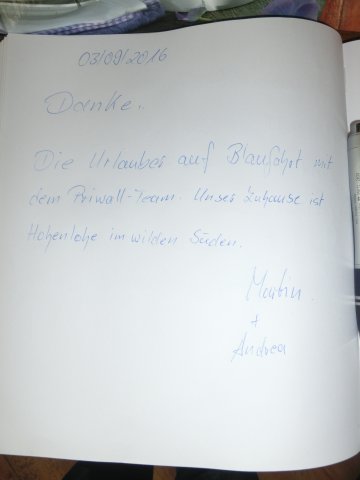 03/09/2016
Danke.
Die Urlauber auf Blaufahrt mit
dem Priwall-Team. Unser Zuhause ist
Hohenlohe im wilden Süden.
Martin
+
Andrea